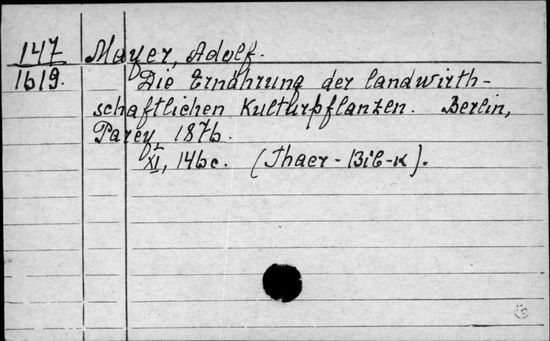 147 Mayer, Adolf.
1619. Die Ernährung der landwirth-
schaftlichen Kulturpflanzen. Berlin,
Parey 1876.
XI, 146 c. (Thaer-Bib-k).